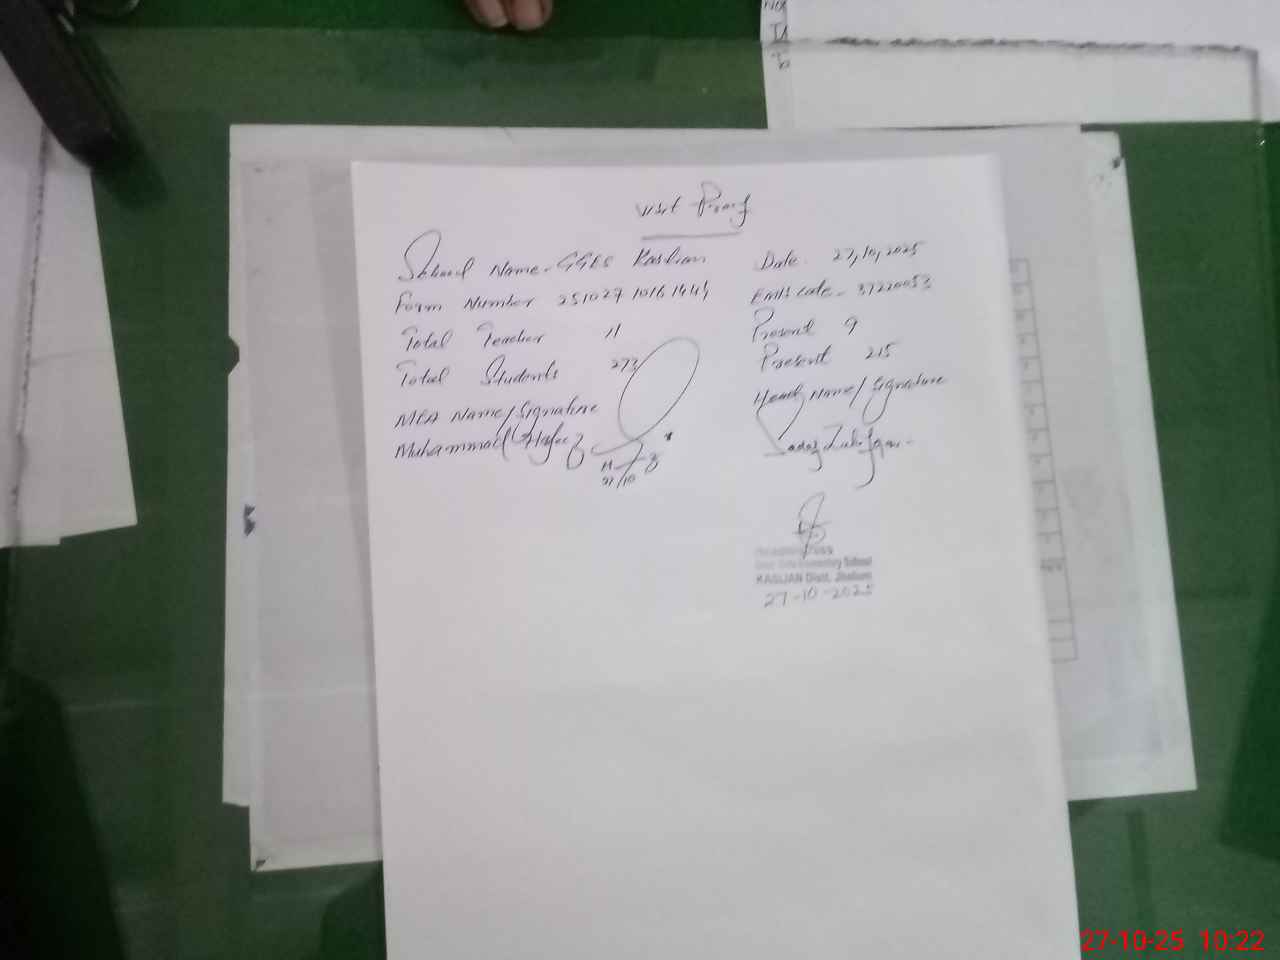 Visit Proof
School Name - GGES Kaslian Date. 27,10,2025
Form Number 251027 10161444 EMIS code - 37220053
Total Teacher 11 Present 9
Total Students 273 Present 215
MEA Name/Signature Head Name/Signature
Muhammad Hafeez
27/10
KASLIAN Distt. Jhelum
27-10-2025
27-10-25 10:22